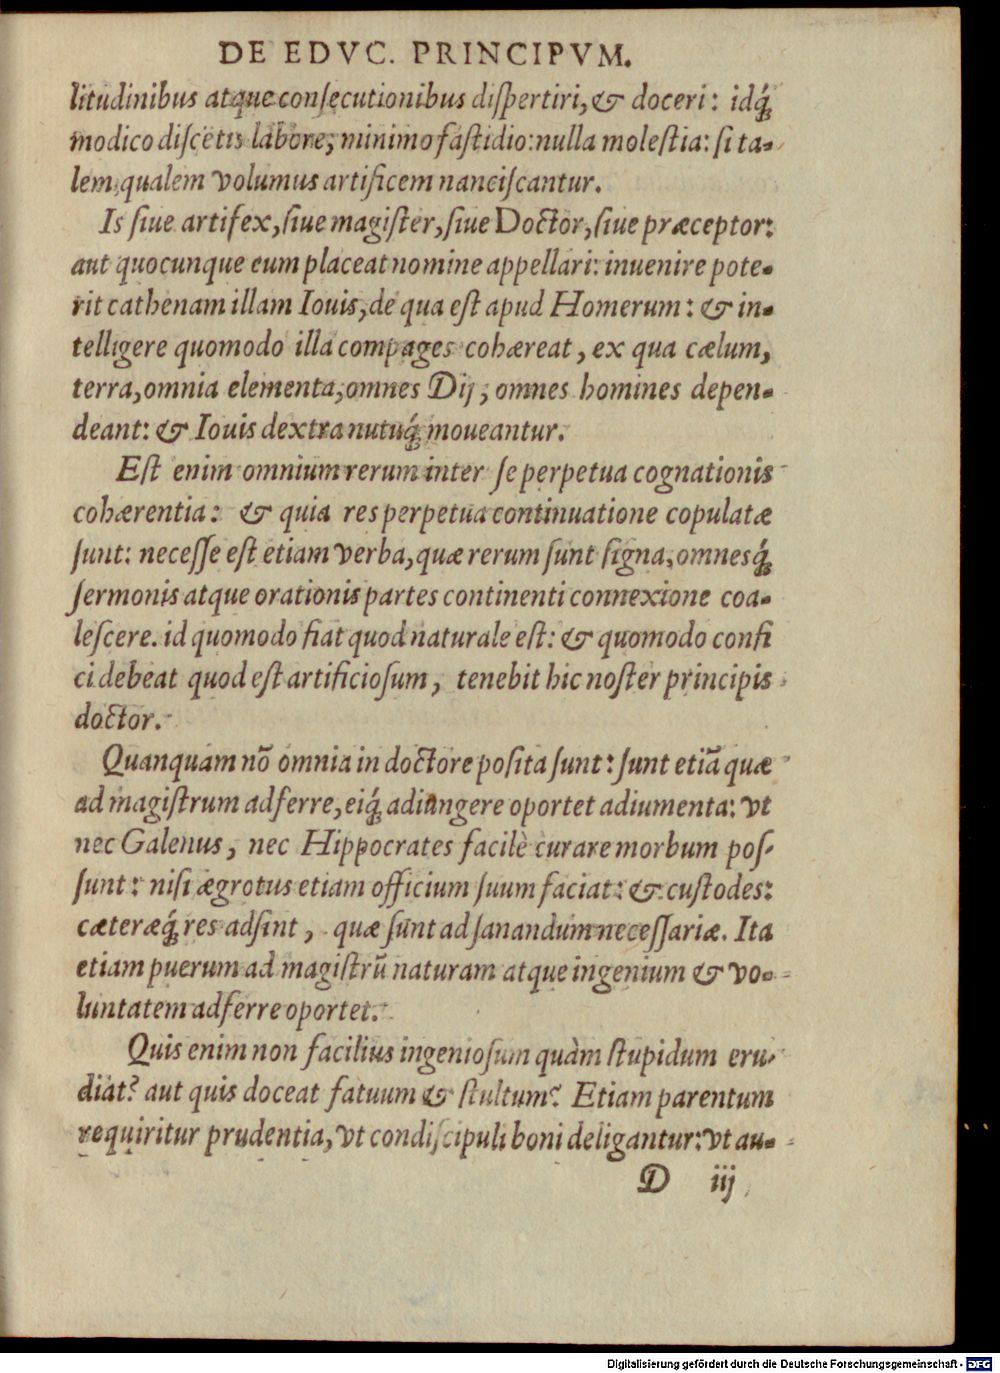 DE EDVC. PRINCIPVM.
litudinibus atque consecutionibus dispertiri, & doceri: idq́;
modico discētis labore, minimo fastidio: nulla molestia: si ta-
lem, qualem volumus artificem nanciscantur.
Is siue artifex, siue magister, siue Doctor, siue præceptor:
aut quocunque eum placeat nomine appellari: inuenire pote-
rit cathenam illam Iouis, de qua est apud Homerum: & in-
telligere quomodo illa compages cohæreat, ex qua cælum,
terra, omnia elementa, omnes Dij, omnes homines depen-
deant: & Iouis dextra nutuq́; moueantur.
Est enim omnium rerum inter se perpetua cognationis
cohærentia: & quia res perpetua continuatione copulatæ
sunt: necesse est etiam verba, quæ rerum sunt signa, omnesq́;
sermonis atque orationis partes continenti connexione coa-
lescere. id quomodo fiat quod naturale est: & quomodo confi
ci debeat quod est artificiosum, tenebit hic noster principis
doctor.
Quanquam nō omnia in doctore posita sunt: sunt etiā quæ
ad magistrum adferre, eiq́; adiungere oportet adiumenta: vt
nec Galenus, nec Hippocrates facilè curare morbum pos-
sunt: nisi ægrotus etiam officium suum faciat: & custodes:
cæteræq́; res adsint, quæ sunt ad sanandum necessariæ. Ita
etiam puerum ad magistrū naturam atque ingenium & vo-
luntatem adferre oportet.
Quis enim non facilius ingeniosum quàm stupidum eru-
diat? aut quis doceat fatuum & stultum? Etiam parentum
requiritur prudentia, vt condiscipuli boni deligantur: vt au-
D iij
Digitalisierung gefördert durch die Deutsche Forschungsgemeinschaft - DFG